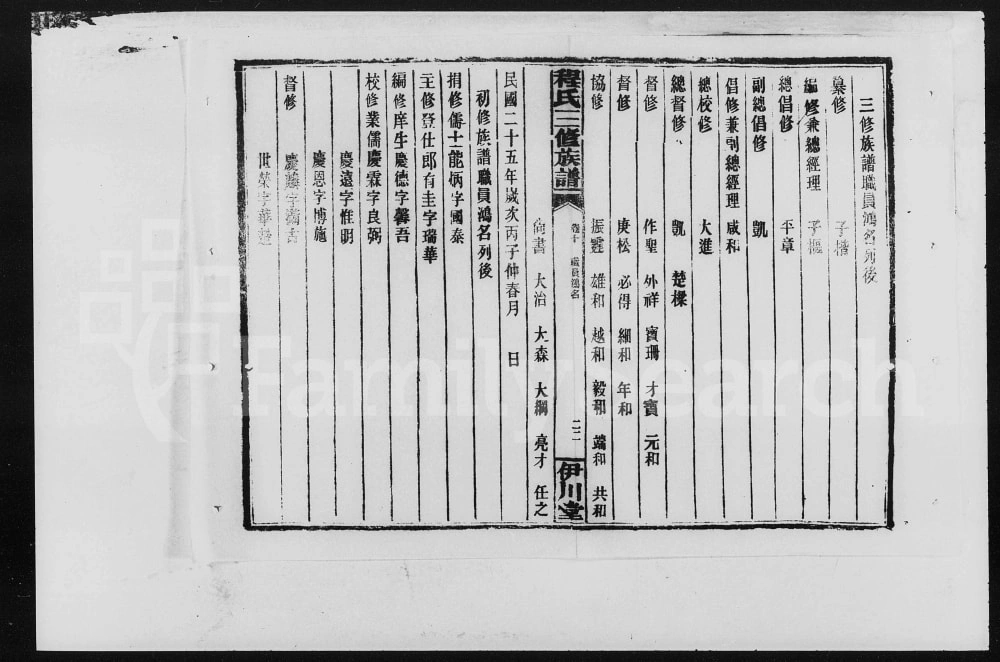 三修族譜職員鴻名列後
纂修 子楷
編修兼總經理 子樞
總倡修 平章
副總倡修 凱
倡修兼副總經理 咸和
總校修 大進
總督修 凱 楚樑
督修 作聖 外祥 寶珊 才寶 元和
督修 庚松 必得 細和 年和
協修 振霆 雄和 越和 毅和 端和 共和
程氏三修族譜
職員鴻名
二二
伊川堂
尙書 大治 大森 大綱 亮才 任之
民國二十五年歲次丙子仲春月 日
初修族譜職員鴻名列後
捐修儒士能炳字國泰
主修登仕郎有圭字瑞華
編修庠生慶德字馨吾
校修業儒慶霖字良弼
慶遠字惟明
慶恩字博施
督修 慶
世榮字華
FamilySearch